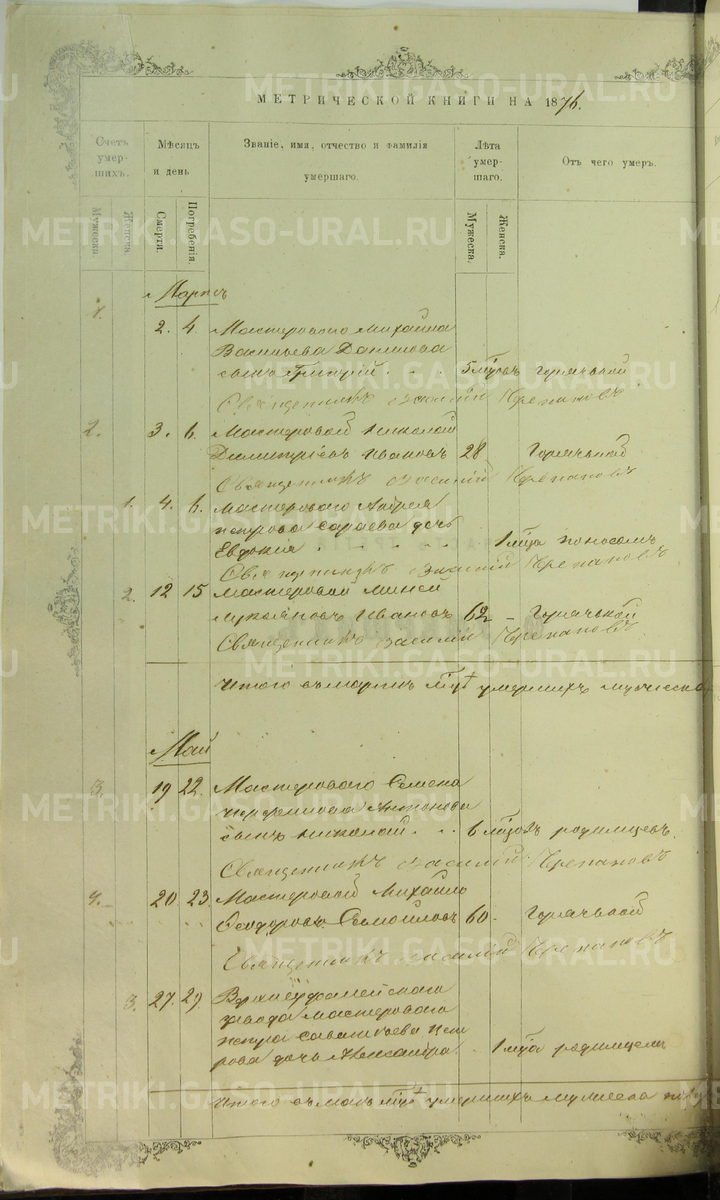 МЕТРИЧЕСКОЙ КНИГИ НА 1876.
Счетъ умер- шихъ.
Мѣсяцъ и день
Званіе, имя, отчество и фамилія умершаго.
Лѣта умер- шаго.
Отъ чего умеръ.
Мужеска
Женска
Смерти.
Погребенія.
Мужеска.
Женска.
Мартъ
1.
2. 4. Мастероваго Михаила
Васильева Данилова
сынъ Григорій. . . . 5 мѣсяцъ Горячкой
Священникъ Василій Черепановъ
2. 3. 6. Мастеровой Николай
Димитріевъ Ивановъ 28 Горячкой
Священникъ Василій Черепановъ
1. 4. 6. Мастероваго Андрея
Петрова Сараева дочь
Евдокія . . . . . 1 мѣца поносомъ
Священникъ Василій Черепановъ
2. 12 15 Мастеровой
Ивановъ 62 – Горячкой
Священникъ Василій Черепановъ
Итого въ мартѣ мцѣ умершихъ мужеска
Май
3. 19 22. Мастероваго Семена
Антонова
сынъ Николай. . . 6 мѣцовъ родимцемъ.
Священникъ Василій Черепановъ
4. 20. 23 Мастеровой Михайло
Ѳеодоровъ Самойловъ 60 – Горячкой
Священникъ Василій Черепановъ
3. 27. 29. Верхнеуфалейскаго
завода Мастероваго
Петра Савватѣева Пет
рова дочь Александра. 1 мѣца родимцемъ
Итого въ маѣ мцѣ умершихъ мужеска пола
METRIKI.GASO-URAL.RU